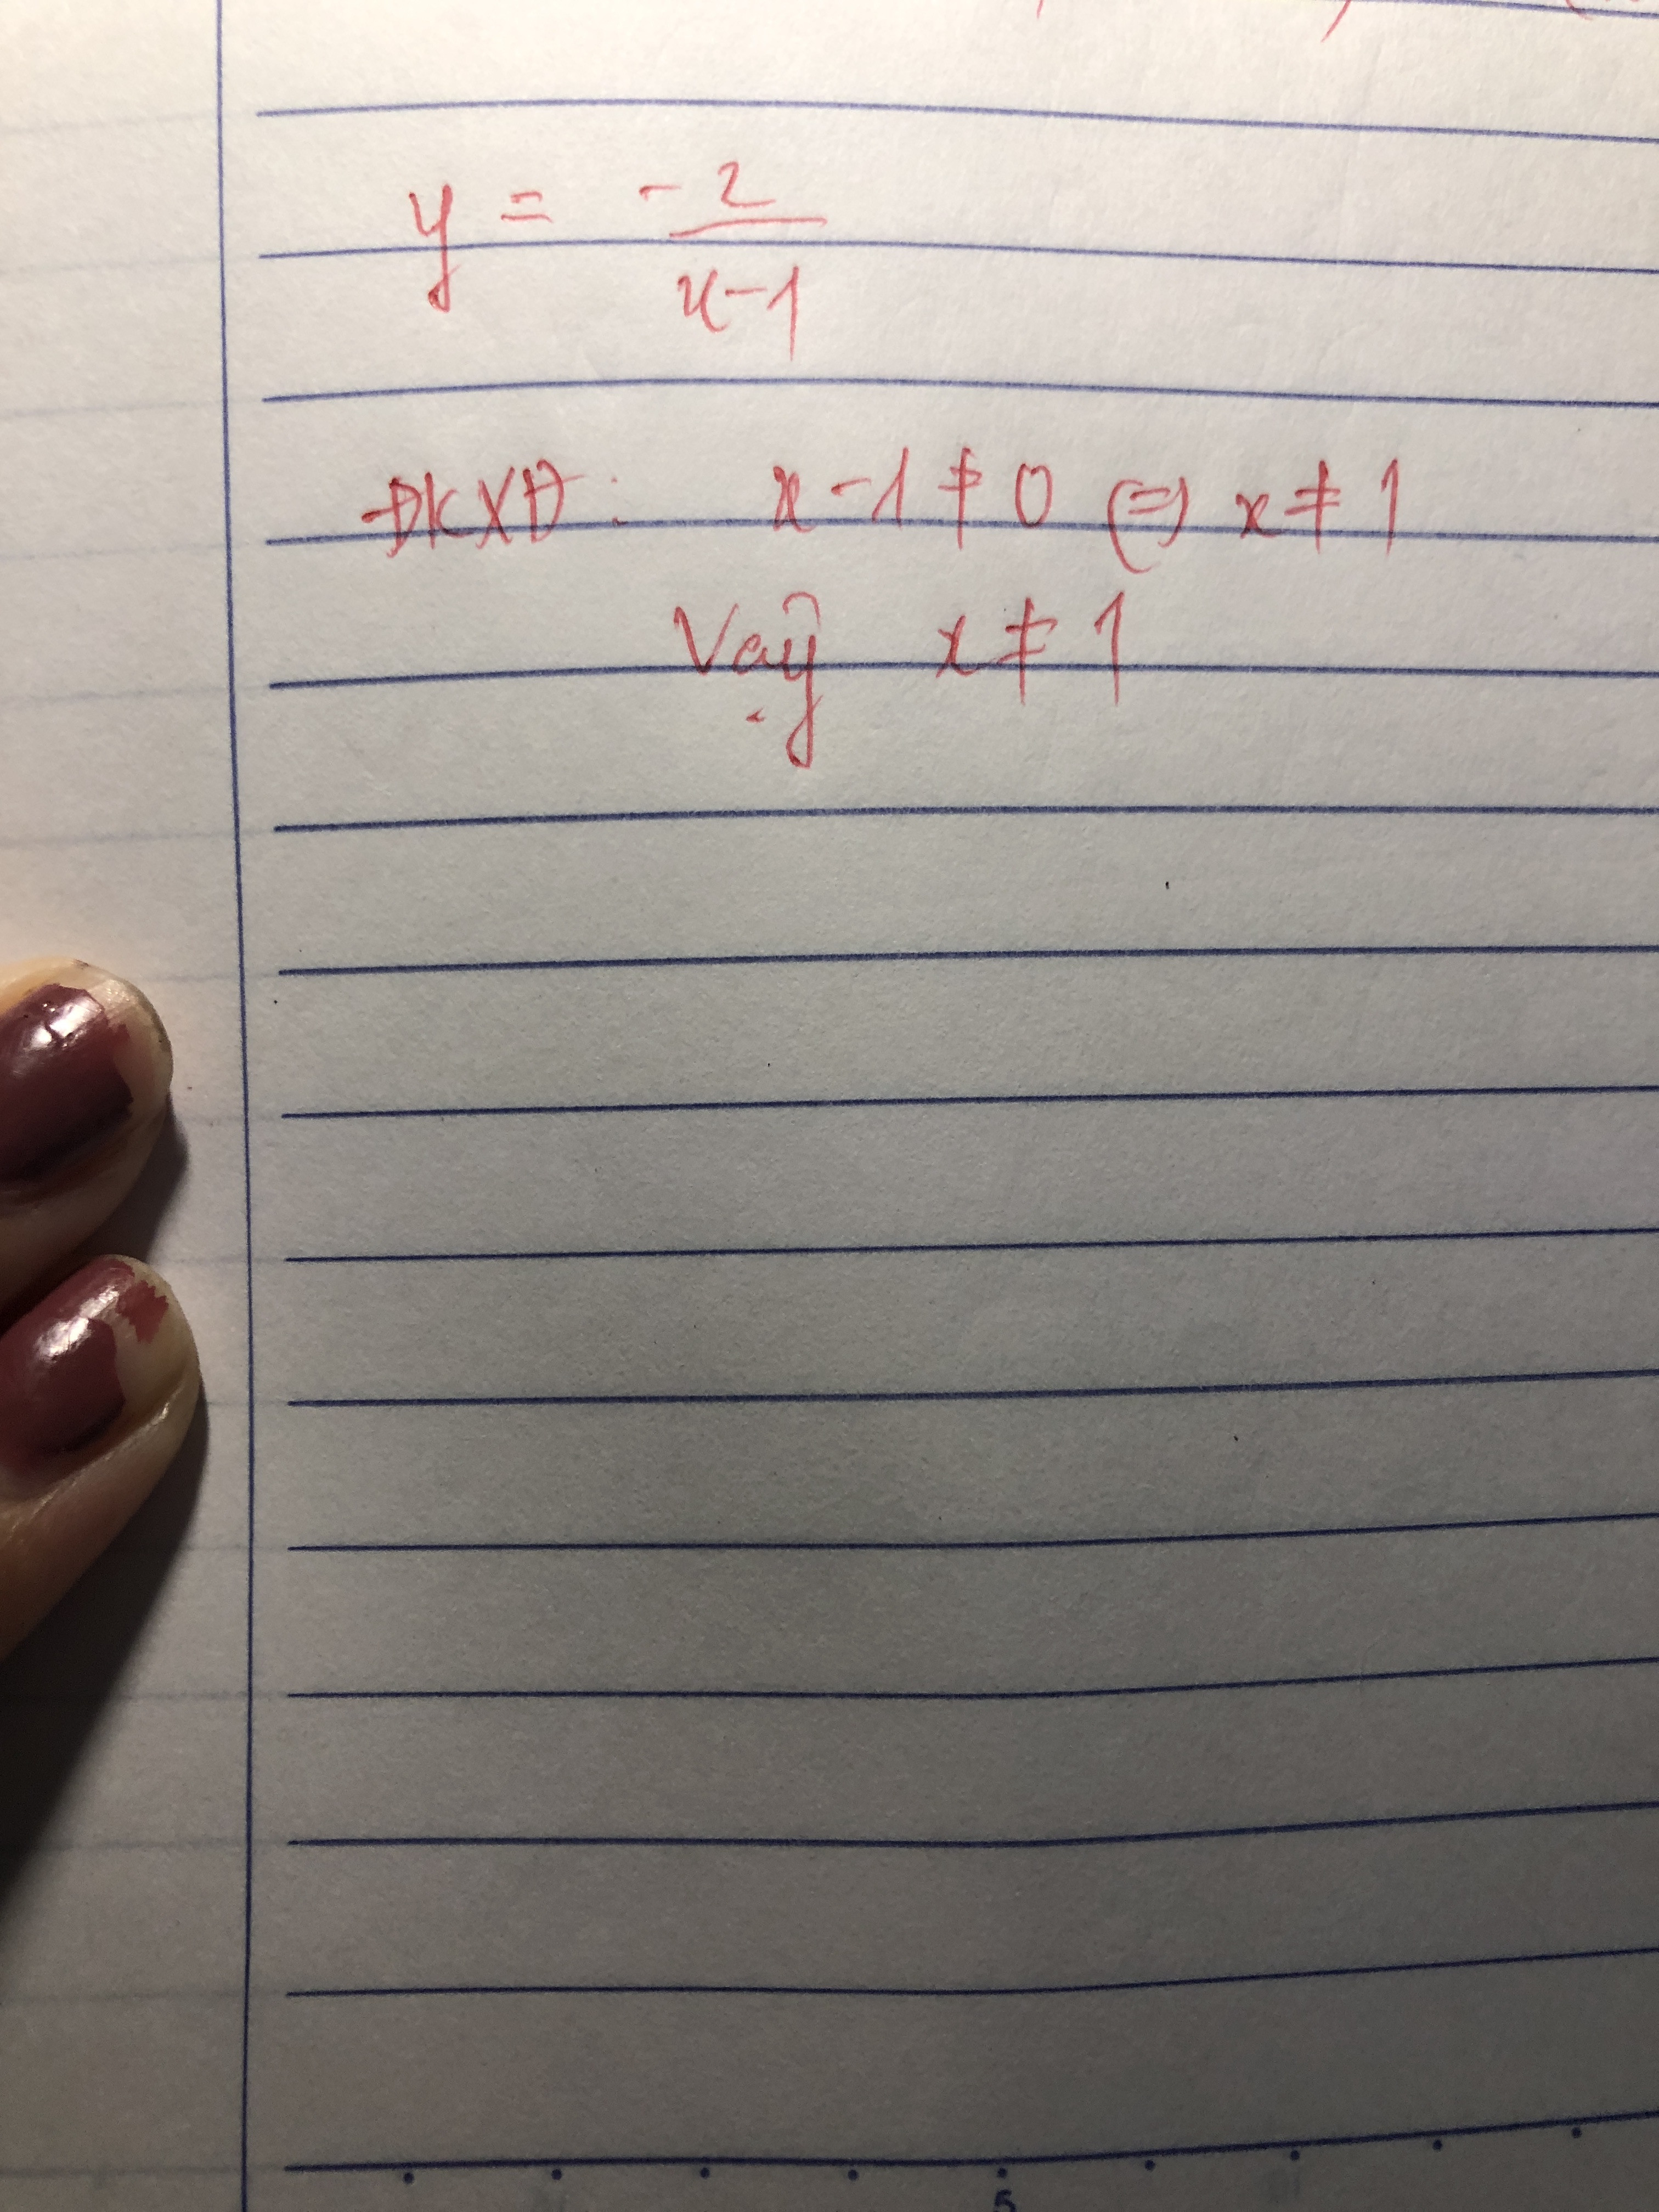 y = -2/(x-1)
ĐKXĐ: x-1 ≠ 0 (=) x ≠ 1
Vậy x ≠ 1
5